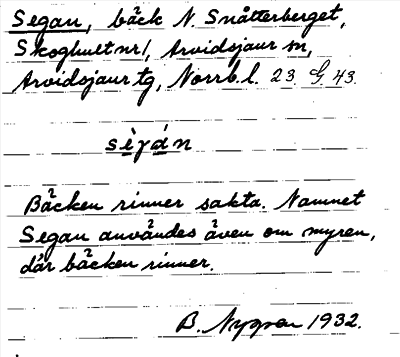 Segan, bäck N. Snåtterberget,
Skoghult nr 1, Arvidsjaur sn,
Arvidsjaur tg, Norrb. l. 23 G. 43.
sèγán
Bäcken rinner sakta. Namnet
Segan användes även om myren,
där bäcken rinner.
B. Nygren 1932.